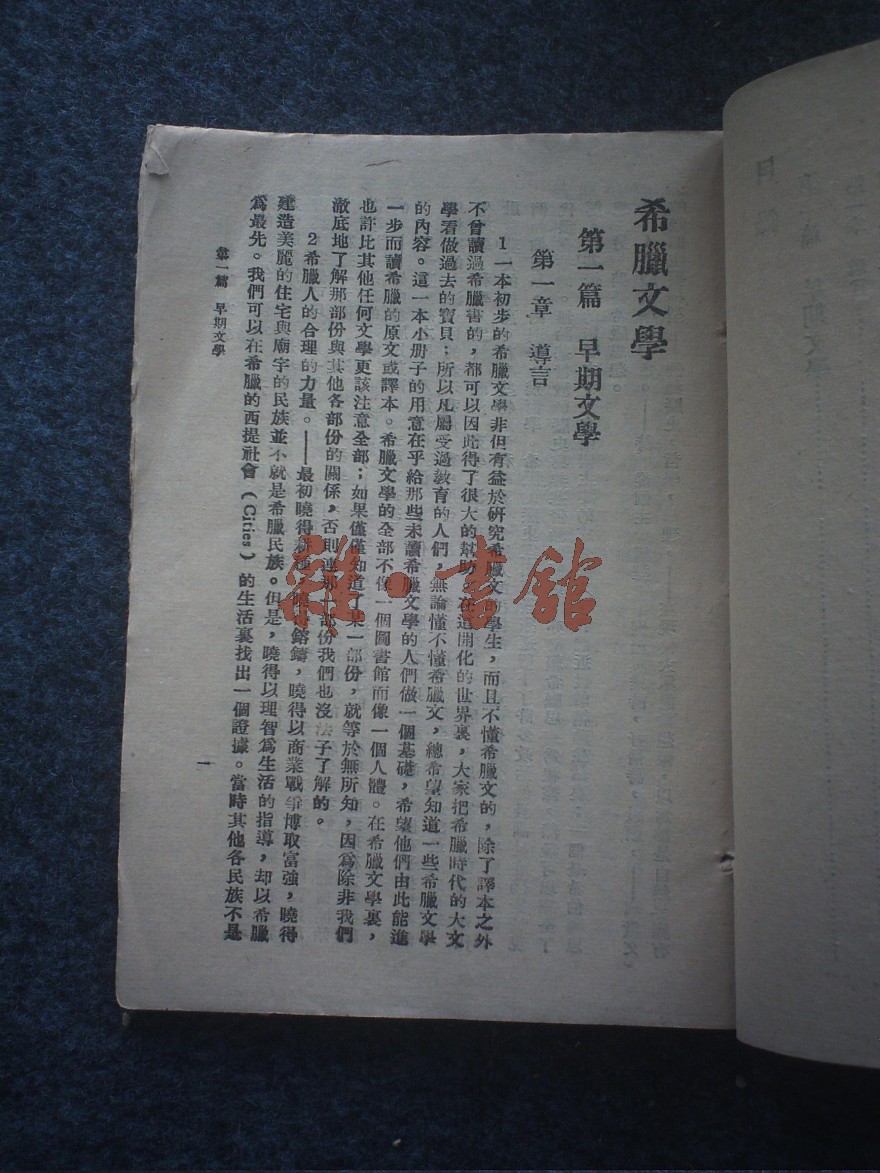 希臘文學
第一篇　早期文學
第一章　導言
1 一本初步的希臘文學非但有益於研究希臘文的學生，而且不懂希臘文的，除了譯本之外
不曾讀過希臘書的，都可以因此得了很大的幫助。在這開化的世界裏，大家把希臘時代的大文
學看做過去的寶貝；所以凡屬受過教育的人們，無論懂不懂希臘文，總希望知道一些希臘文學
的內容。這一本小册子的用意在乎給那些未讀希臘文學的人們做一個基礎，希望他們由此能進
一步而讀希臘的原文或譯本。希臘文學的全部不像一個圖書館而像一個人體。在希臘文學裏，
也許比其他任何文學更該注意全部；如果僅僅知道了某一部份，就等於無所知，因爲除非我們
澈底地了解那部份與其他各部份的關係，否則連那一部份我們也沒法子了解的。
2 希臘人的合理的力量。——最初曉得耕種，曉得鎔鑄，曉得以商業戰爭博取富強，曉得
建造美麗的住宅與廟宇的民族並不就是希臘民族。但是，曉得以理智爲生活的指導，却以希臘
爲最先。我們可以在希臘的西提社會（Cities）的生活裏找出一個證據。當時其他各民族不是
第一篇　早期文學
一
雜·書館